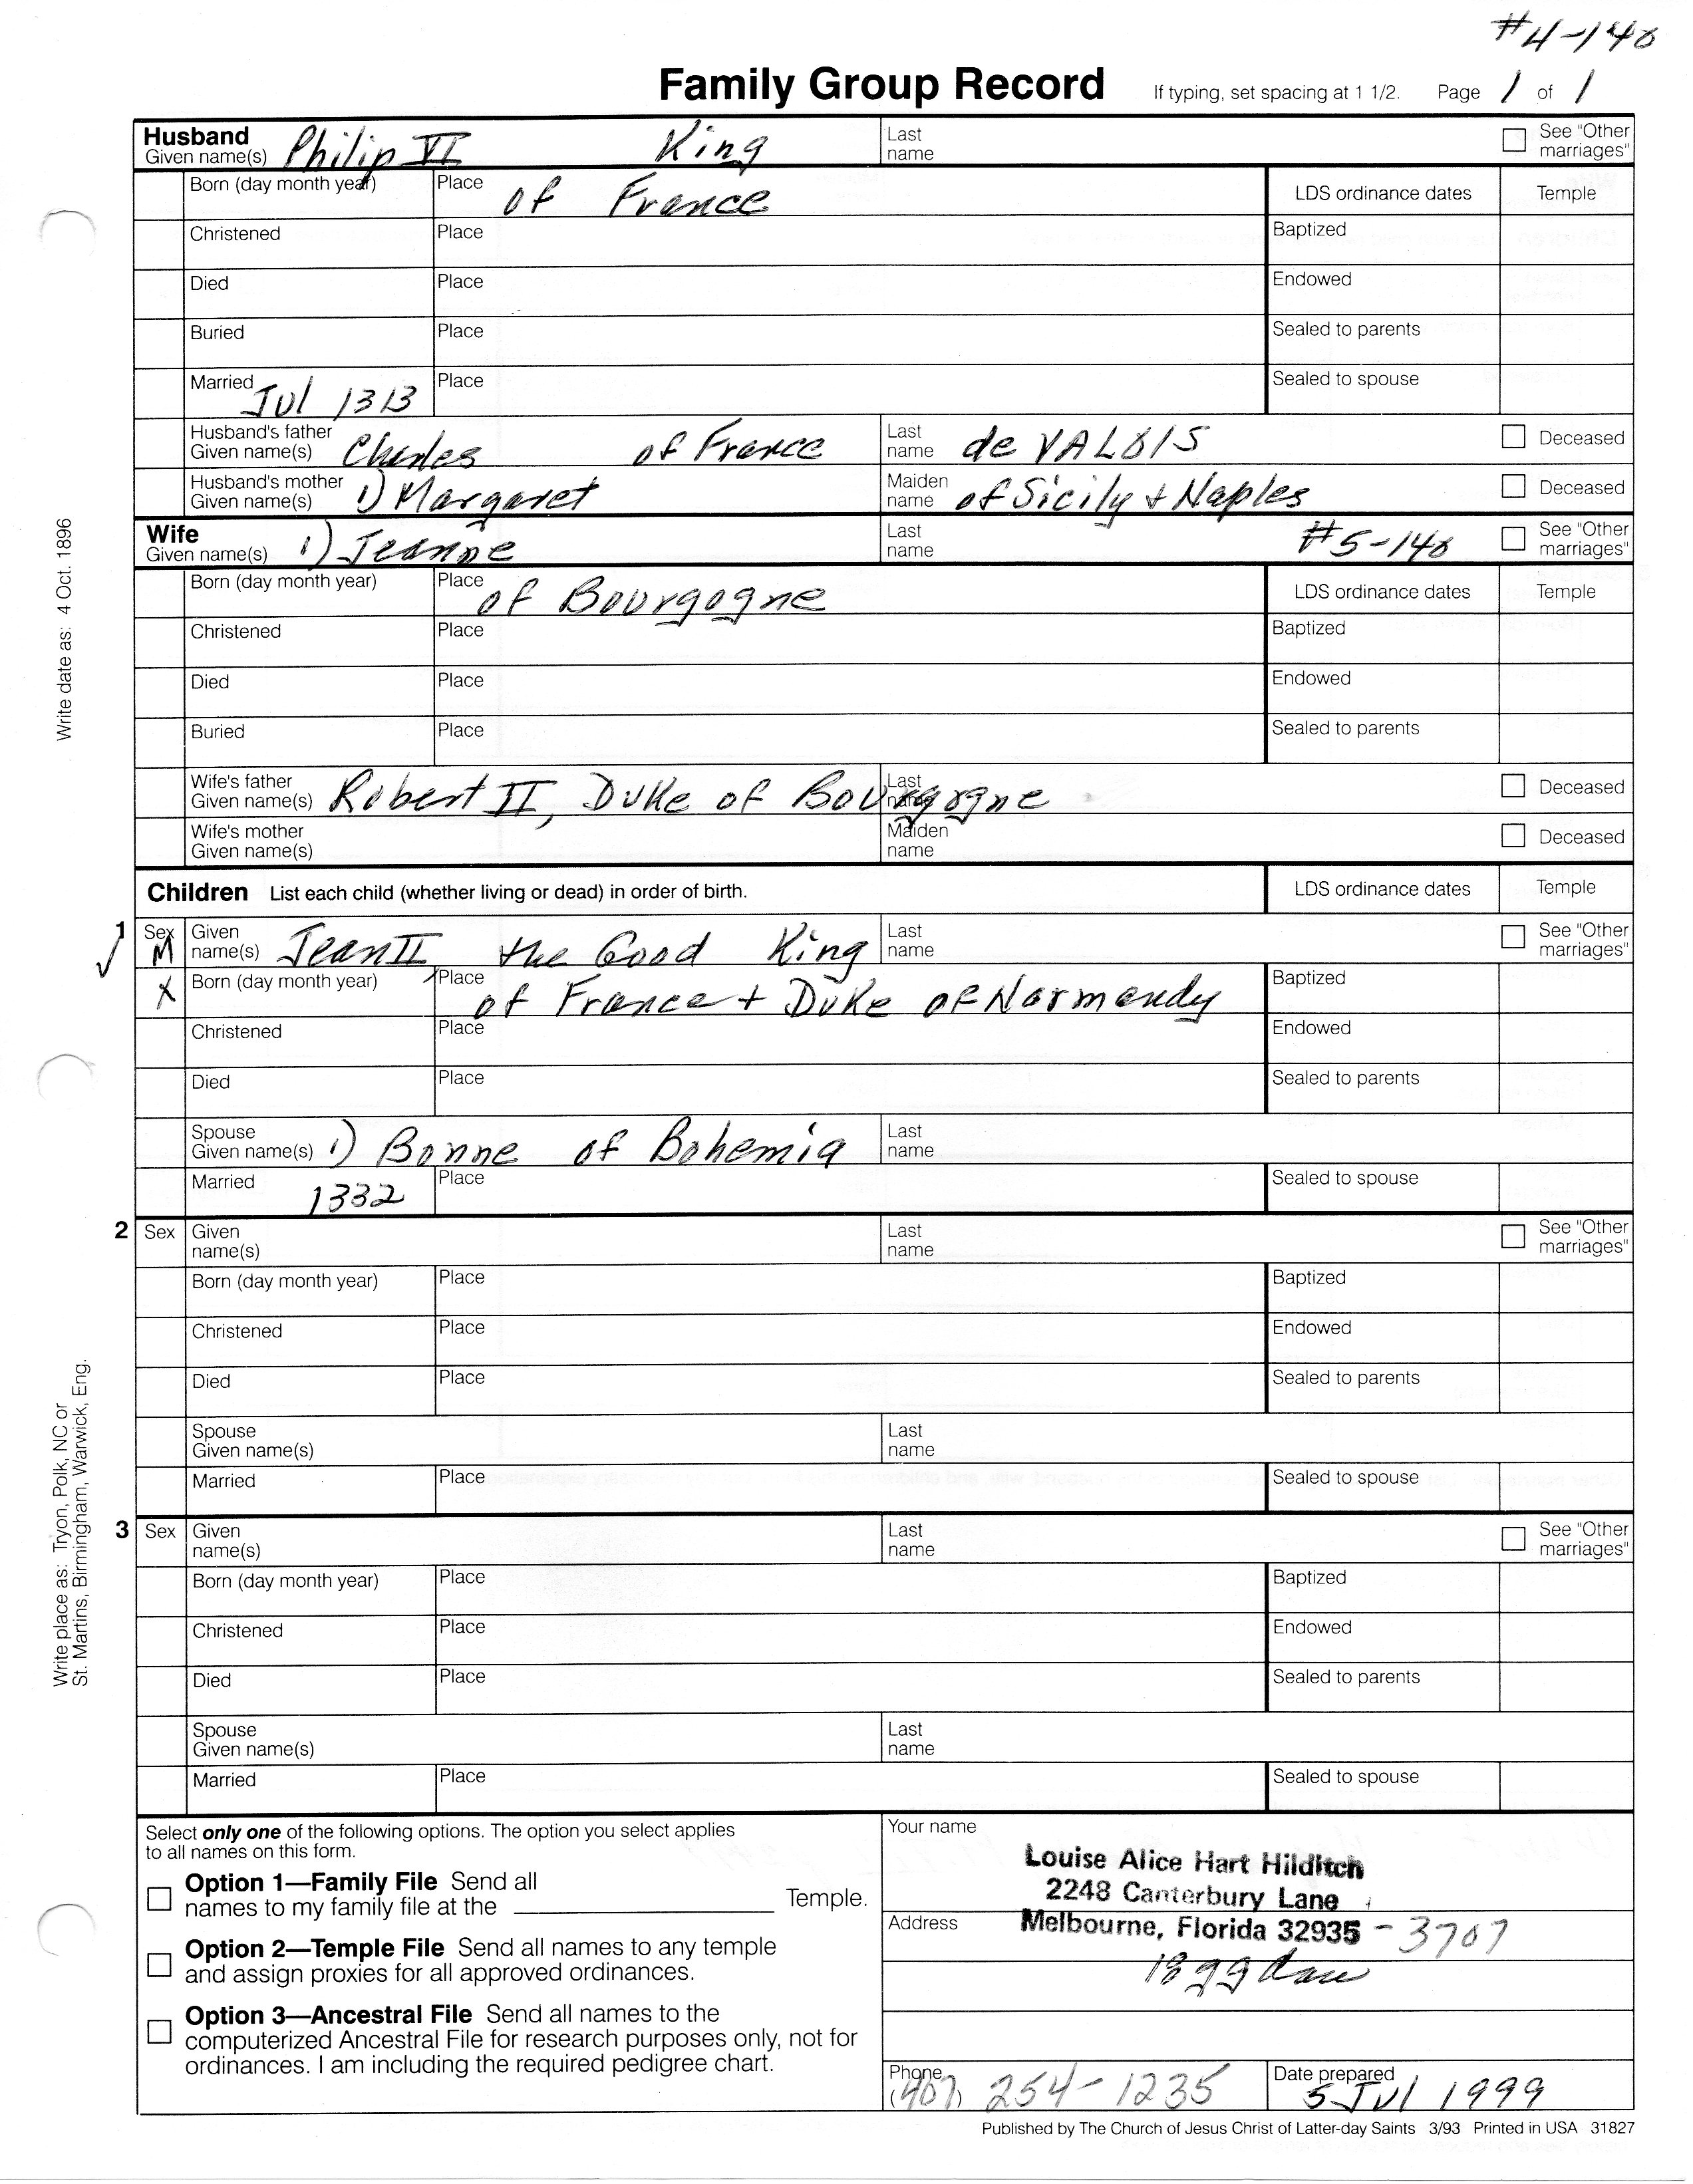 #4-148
Family Group Record If typing, set spacing at 1 1/2. Page 1 of 1
Husband Given name(s) Philip VI King Last name See "Other marriages"
Born (day month year) Place of France LDS ordinance dates Temple
Christened Place Baptized
Died Place Endowed
Buried Place Sealed to parents
Married Jul 1313 Place Sealed to spouse
Husband's father Given name(s) Charles of France Last name de VALOIS Deceased
Husband's mother Given name(s) 1) Margaret Maiden name of Sicily + Naples Deceased
Wife Given name(s) 1) Jeanne Last name #5-148 See "Other marriages"
Born (day month year) Place of Bourgogne LDS ordinance dates Temple
Christened Place Baptized
Died Place Endowed
Buried Place Sealed to parents
Wife's father Given name(s) Robert II, Duke of Bourgogne Last name Deceased
Wife's mother Given name(s) Maiden name Deceased
Children List each child (whether living or dead) in order of birth. LDS ordinance dates Temple
1 Sex M Given name(s) Jean II the Good King Last name See "Other marriages"
X Born (day month year) Place of France + Duke of Normandy Baptized
Christened Place Endowed
Died Place Sealed to parents
Spouse Given name(s) 1) Bonne of Bohemia Last name
Married 1332 Place Sealed to spouse
2 Sex Given name(s) Last name See "Other marriages"
Born (day month year) Place Baptized
Christened Place Endowed
Died Place Sealed to parents
Spouse Given name(s) Last name
Married Place Sealed to spouse
3 Sex Given name(s) Last name See "Other marriages"
Born (day month year) Place Baptized
Christened Place Endowed
Died Place Sealed to parents
Spouse Given name(s) Last name
Married Place Sealed to spouse
Write date as: 4 Oct. 1896
Write place as: Tryon, Polk, NC or
St. Martins, Birmingham, Warwick, Eng.
Select only one of the following options. The option you select applies
to all names on this form.
Option 1—Family File Send all
names to my family file at the Temple.
Option 2—Temple File Send all names to any temple
and assign proxies for all approved ordinances.
Option 3—Ancestral File Send all names to the
computerized Ancestral File for research purposes only, not for
ordinances. I am including the required pedigree chart.
Your name
Louise Alice Hart Hilditch
2248 Canterbury Lane
Address Melbourne, Florida 32935 - 3707
Phone (407) 254-1235 Date prepared 5 Jul 1999
Published by The Church of Jesus Christ of Latter-day Saints 3/93 Printed in USA 31827